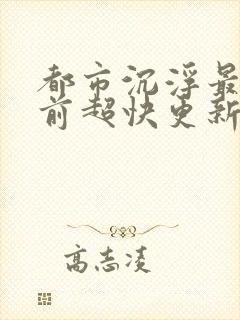 都市沉浮最
前超快更新
高志凌